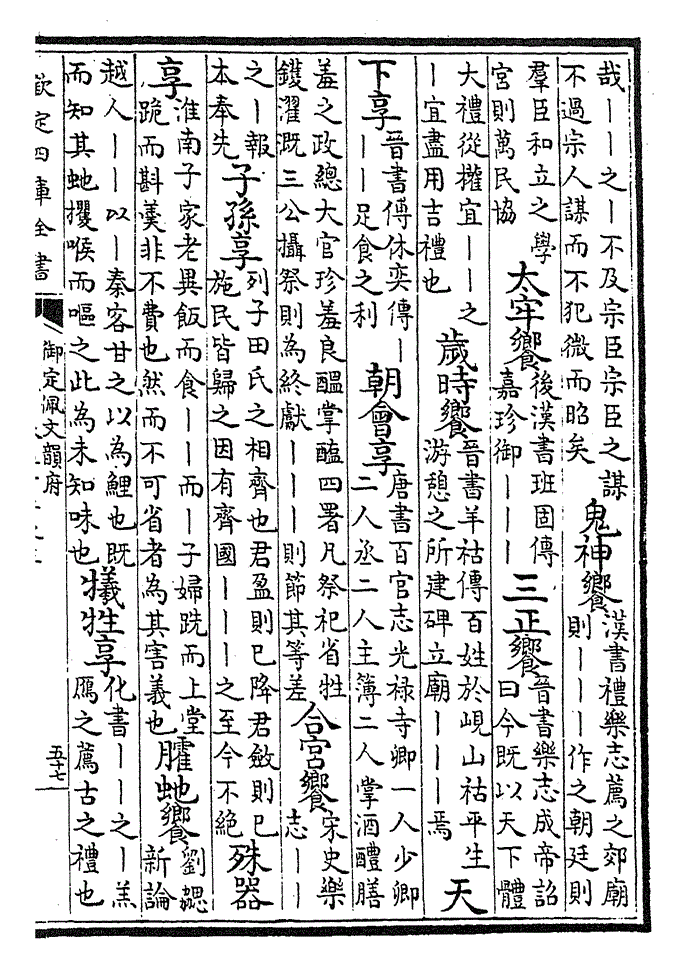 哉——之—不及宗臣宗臣之謀
不過宗人謀而不犯微而昭矣
鬼神饗
漢書禮樂志薦之郊廟
則———作之朝廷則
羣臣和立之學
宮則萬民協
太牢饗
後漢書班固傳
嘉珍御———
三正饗
晉書樂志成帝詔
曰今既以天下體
大禮從權宜——之
—宜盡用吉禮也
歲時饗
晉書羊祜傳百姓於峴山祜平生
游憩之所建碑立廟———焉
天
下享
晉書傅休奕傳—
——足食之利
朝會享
唐書百官志光禄寺卿一人少卿
二人丞二人主簿二人掌酒醴膳
羞之政總大官珍羞良醞掌醢四署凡祭祀省牲
鑊濯溉三公攝祭則為終獻———則節其等差
合宮饗
宋史樂
志——
之—報
本奉先
子孫享
列子田氏之相齊也君盈則已降君斂則已
施民皆歸之因有齊國———之至今不絕
殊器
享
淮南子家老異飯而食——而—子婦跣而上堂
跪而斟羹非不費也然而不可省者為其害義也
臛虵饗
劉勰
新論
越人——以—秦客甘之以為鯉也既
而知其虵攫喉而嘔之此為未知味也
犧牲享
化書——之—羔
鴈之薦古之禮也
欽定四庫全書
御定佩文韻府
五十七